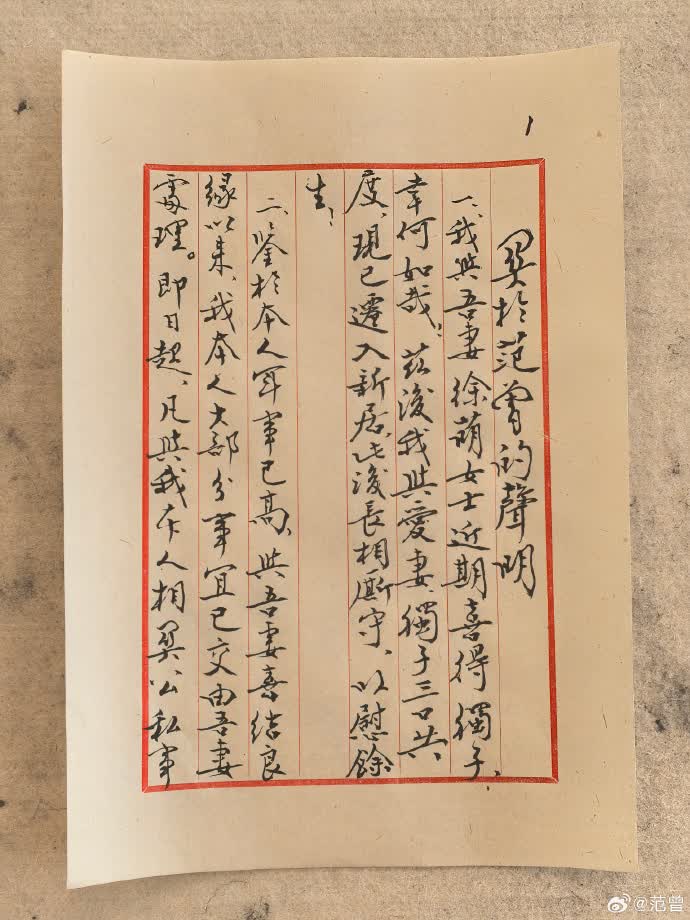 1
関於范曾的聲明
一、我與吾妻徐萌女士近期喜得獨子，
幸何如哉。茲後我與愛妻、獨子三口共
度，現已遷入新居，此後長相廝守，以慰餘
生；
二、鑒於本人年事已高，與吾妻喜結良
緣以來，我本人大部分事宜已交由吾妻
處理。即日起，凡與我本人相関公私事
@范曾